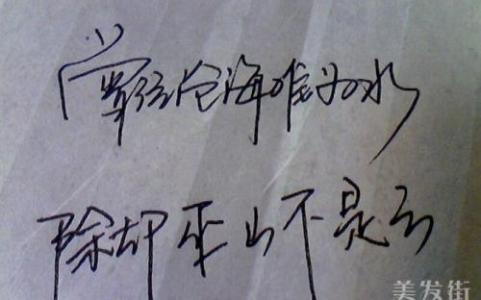 曾经沧海难为水
除却巫山不是云
美发街